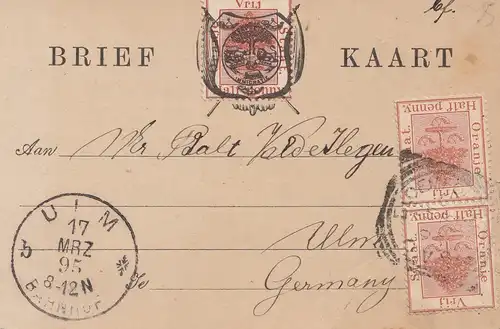 Vrij
BRIEF KAART
Half penny
Aan Mr Balt
Ulm
Germany
ULM
17
MRZ
95
8-12N
BAHNHOF
Half penny.
Oranje
Vrij
staat.
Half penny.
Oranje
Vrij
staat.